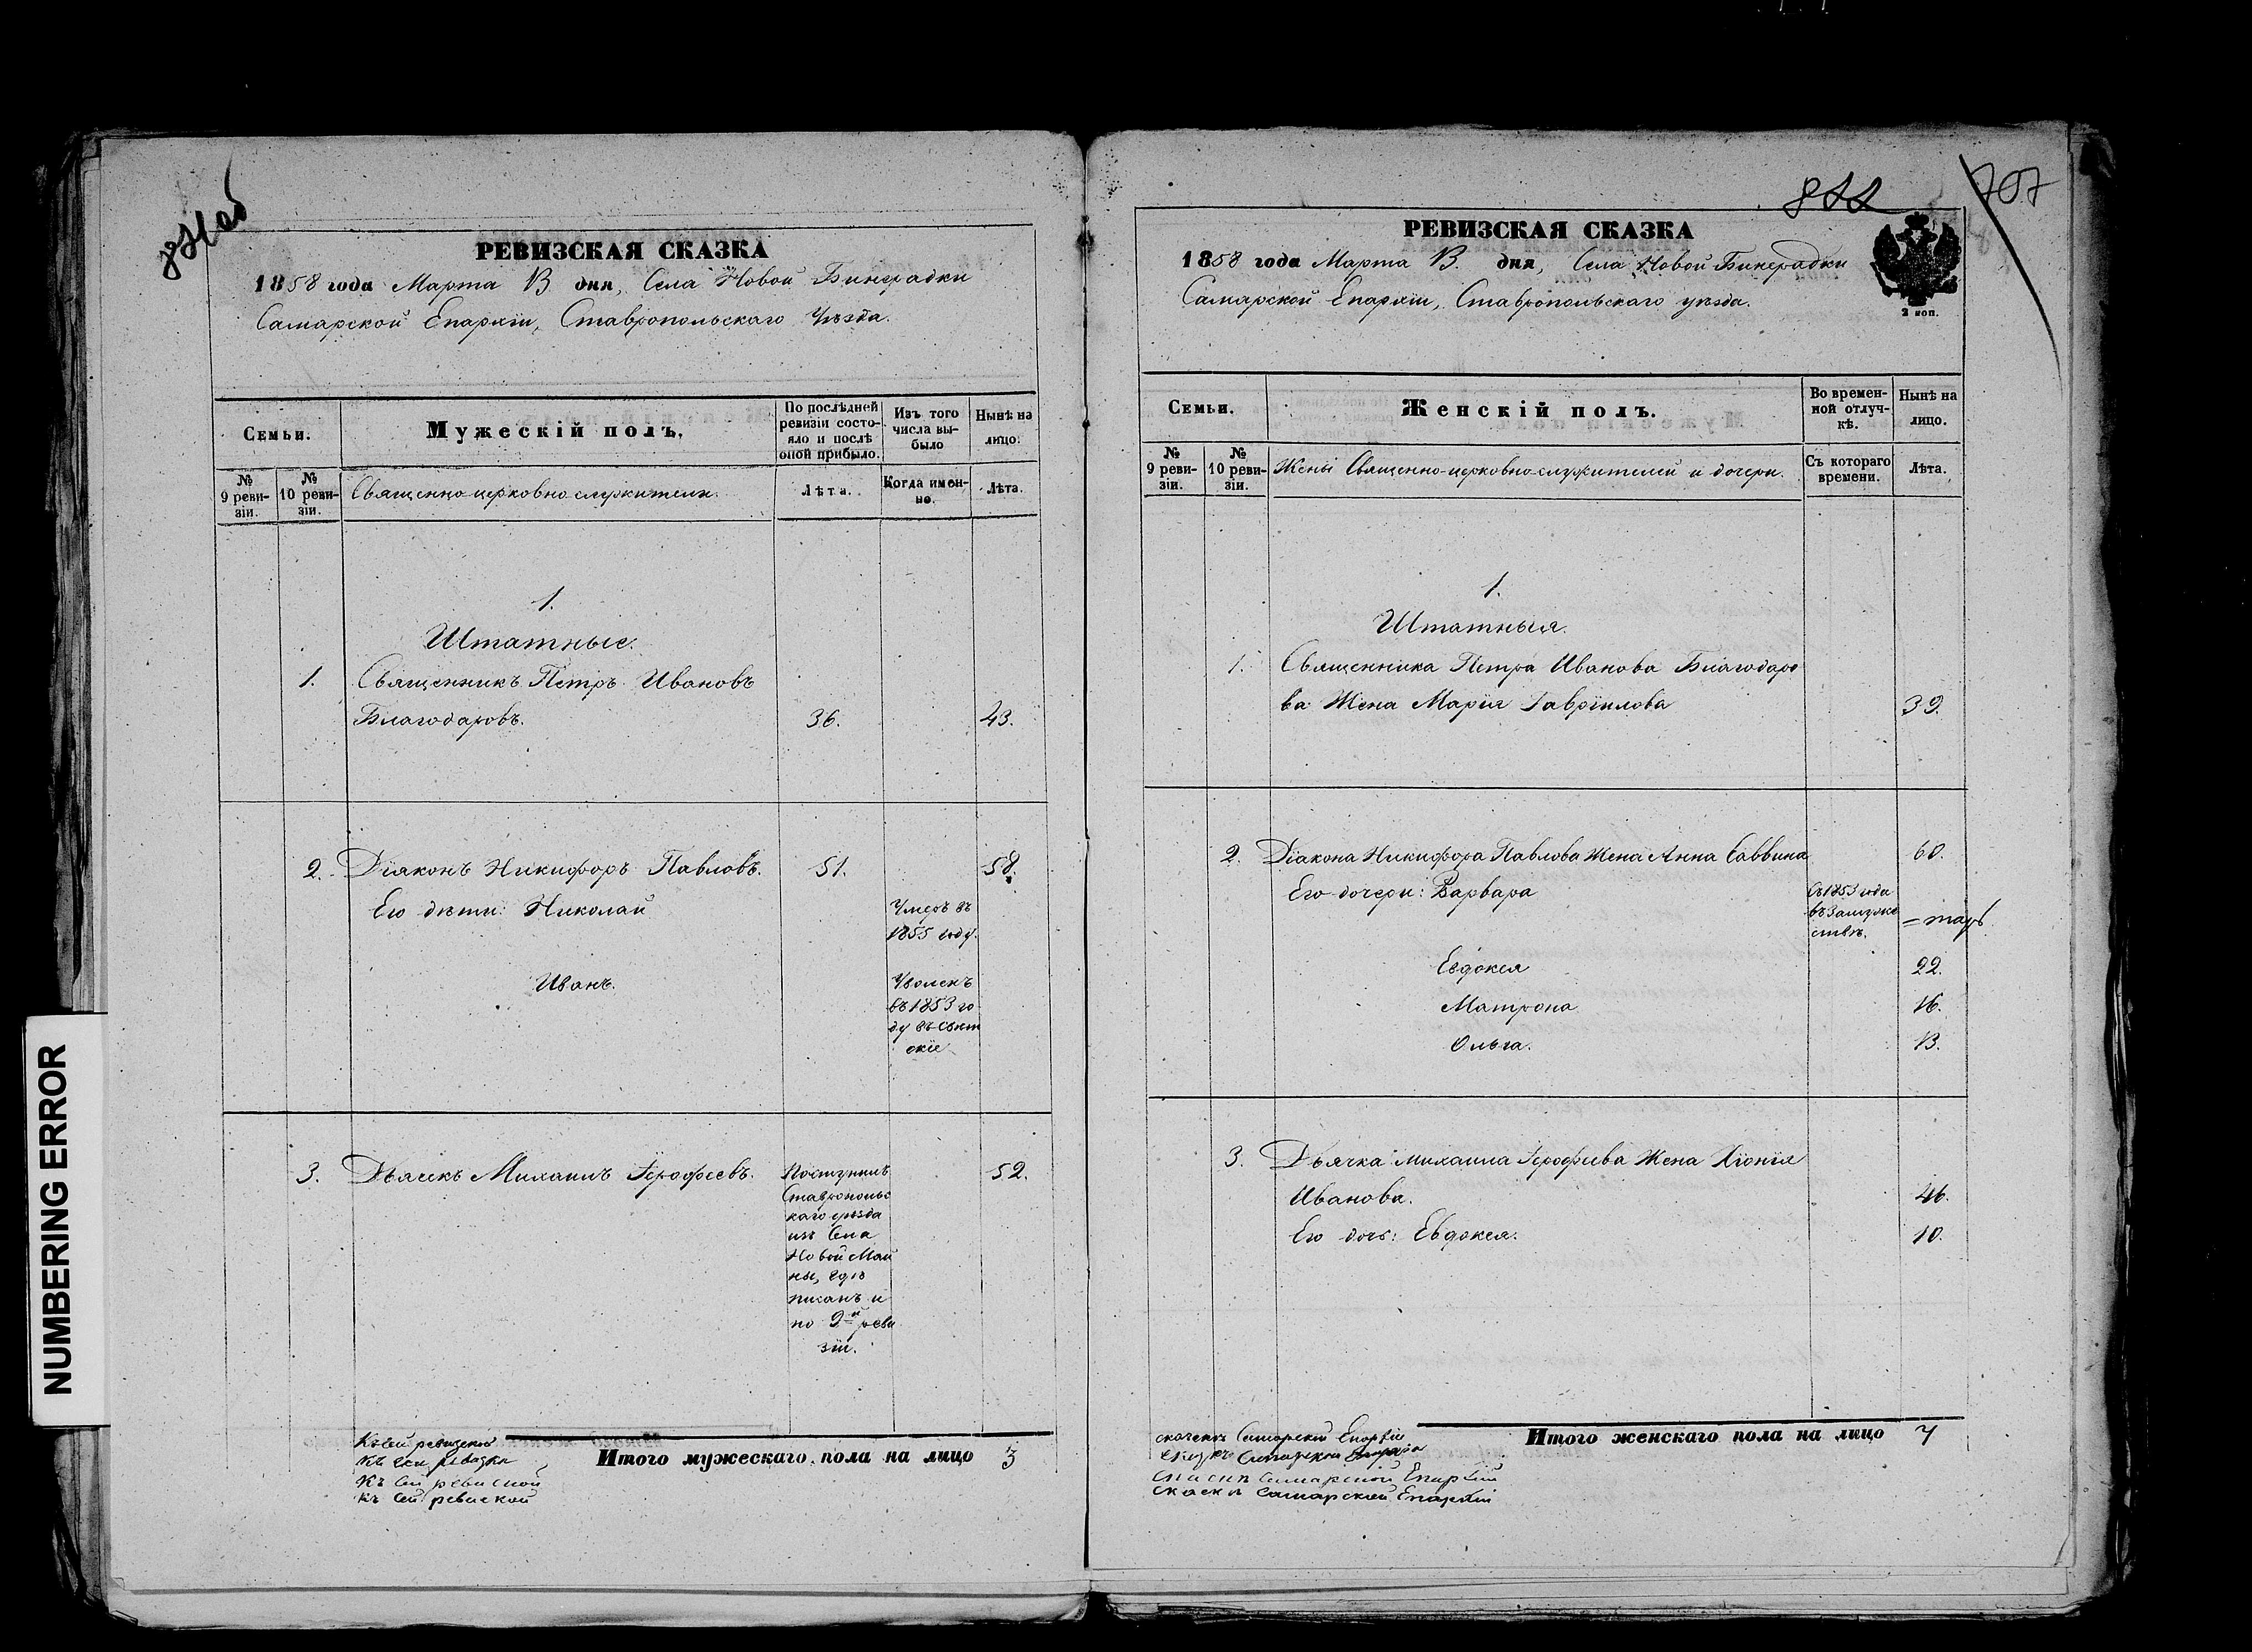 РЕВИЗСКАЯ СКАЗКА
1858 года Марта 13 дня, Села Новой Бинерадки
Самарской Епархіи, Ставропольскаго Уѣзда.
Семьи.
Мужескій полъ.
По послѣдней ревизіи состо-
яло и послѣ
оной прибыло.
Изъ того
числа вы-
было
Нынѣ на
лицо.
№
9 реви-
зіи.
№
10 реви-
зіи.
Священно-церковно служители.
Лѣта.
Когда имен-
но.
Лѣта.
1.
Штатные.
1. Священникъ Петръ Ивановъ
Благодаровъ. 36. 43.
2. Діаконъ Никифоръ Павловъ. 51. 58.
Его дѣти: Николай
Умеръ въ
1855 году.
Иванъ.
Уволенъ
въ 1853 го
ду въ свѣт
скіе
3. Дьячекъ Михаилъ Ерофеевъ. 52.
Поступилъ
Ставропольс
каго уѣзда
изъ Села
Новой Май
ны, гдѣ
писанъ и
по 9й реви
зіи.
Итого мужескаго пола на лицо 3
Къ сей ревизской
Къ сей ревизской
Къ сей ревиской
NUMBERING ERROR
707
РЕВИЗСКАЯ СКАЗКА
1858 года Марта 13. дня, Села Новой Бинерадки
Самарской Епархіи, Ставропольскаго уѣзда.
2 коп.
Семьи.
Женскій полъ.
Во времен-
ной отлуч-
кѣ.
Нынѣ на
лицо.
№
9 реви-
зіи.
№
10 реви-
зіи.
Жены Священно-церковно-служителей и дочери.
Съ котораго
времени.
Лѣта.
1.
Штатныя.
1. Священника Петра Иванова Благодаро
ва Жена Марія Гавріилова 39.
2. Діакона Никифора Павлова Жена Анна Саввина 60.
Его дочери: Варвара
Съ 1853 года
въ замуже
ствѣ.
Евдокея 22.
Матрона 16.
Ольга. 13.
3. Дьячка Михаила Ерофеева Жена Хіонія
Иванова. 46.
Его дочь: Евдокея. 10.
Итого женскаго пола на лицо 7
Самарской Епархіи
Самарской Епархіи
Самарской Епархіи
скаски Самарской Епархіи